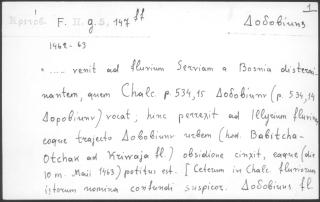 1
Κριτοβ. F. H. g. 5, 147 ff Δοδοβίυης
1462-63
" .... venit ad fluvium Serviam a Bosnia disterminantem,
quem Chalc. p. 534,15 Δοδοβίυην (p. 534,14
Δοροβίυην) vocat; hinc perrexit ad Illyrum fluvium
eoque trajecto Δοβοβίυην urbem (hod. Babitcha-
Otchak ad Kriwaja fl.) obsidione cinxit, eaque (die
10 m. Maii 1463) potitus est. [Ceterum in Chalc. fluviorum
istorum nomina confundi suspicor. Δοδοβίυης fl.